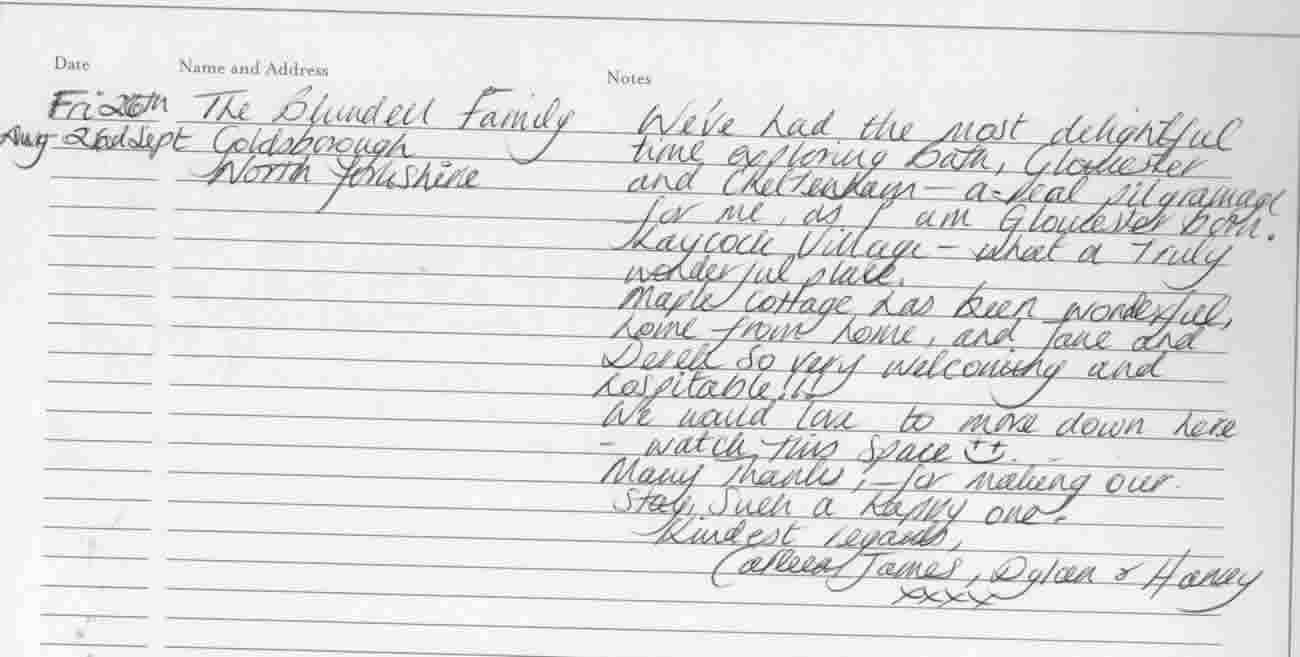 Date Name and Address Notes
Fri 26th The Blundell Family
Aug 2nd Sept Goldsborough
North Yorkshire
We've had the most delightful
time exploring Bath, Gloucester
and Cheltenham – a real pilgramage
for me, as I am Gloucester born.
Laycock Village – what a truly
wonderful place.
Maple cottage has been wonderful,
home from home, and Jane and
Derek so very welcoming and
hospitable!!!
We would love to move down here
- watch this space
Many thanks, for making our
stay, such a happy one.
Kindest regards,
James, Dylan & Harvey
xxxx